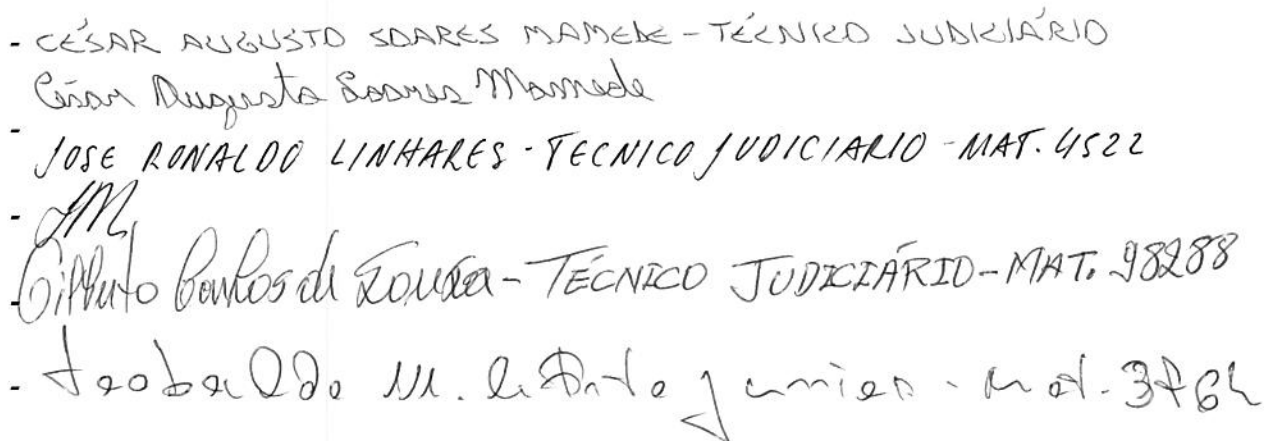 - CÉSAR AUGUSTO SOARES MAMEDE - TÉCNICO JUDICIÁRIO
César Augusto Soares Mamede
- JOSE RONALDO LINHARES - TECNICO JUDICIARIO - MAT. 4522
-
- Gilberto de Souza - TÉCNICO JUDICIÁRIO - MAT. 98288
- Teobaldo M. Junior - mat.